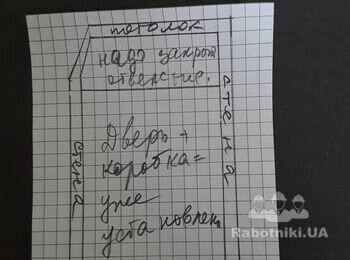 потолок
надо закрыт
отверстие.
стена
стена
Дверь +
коробка =
уже
установлен
Rabotniki.UA